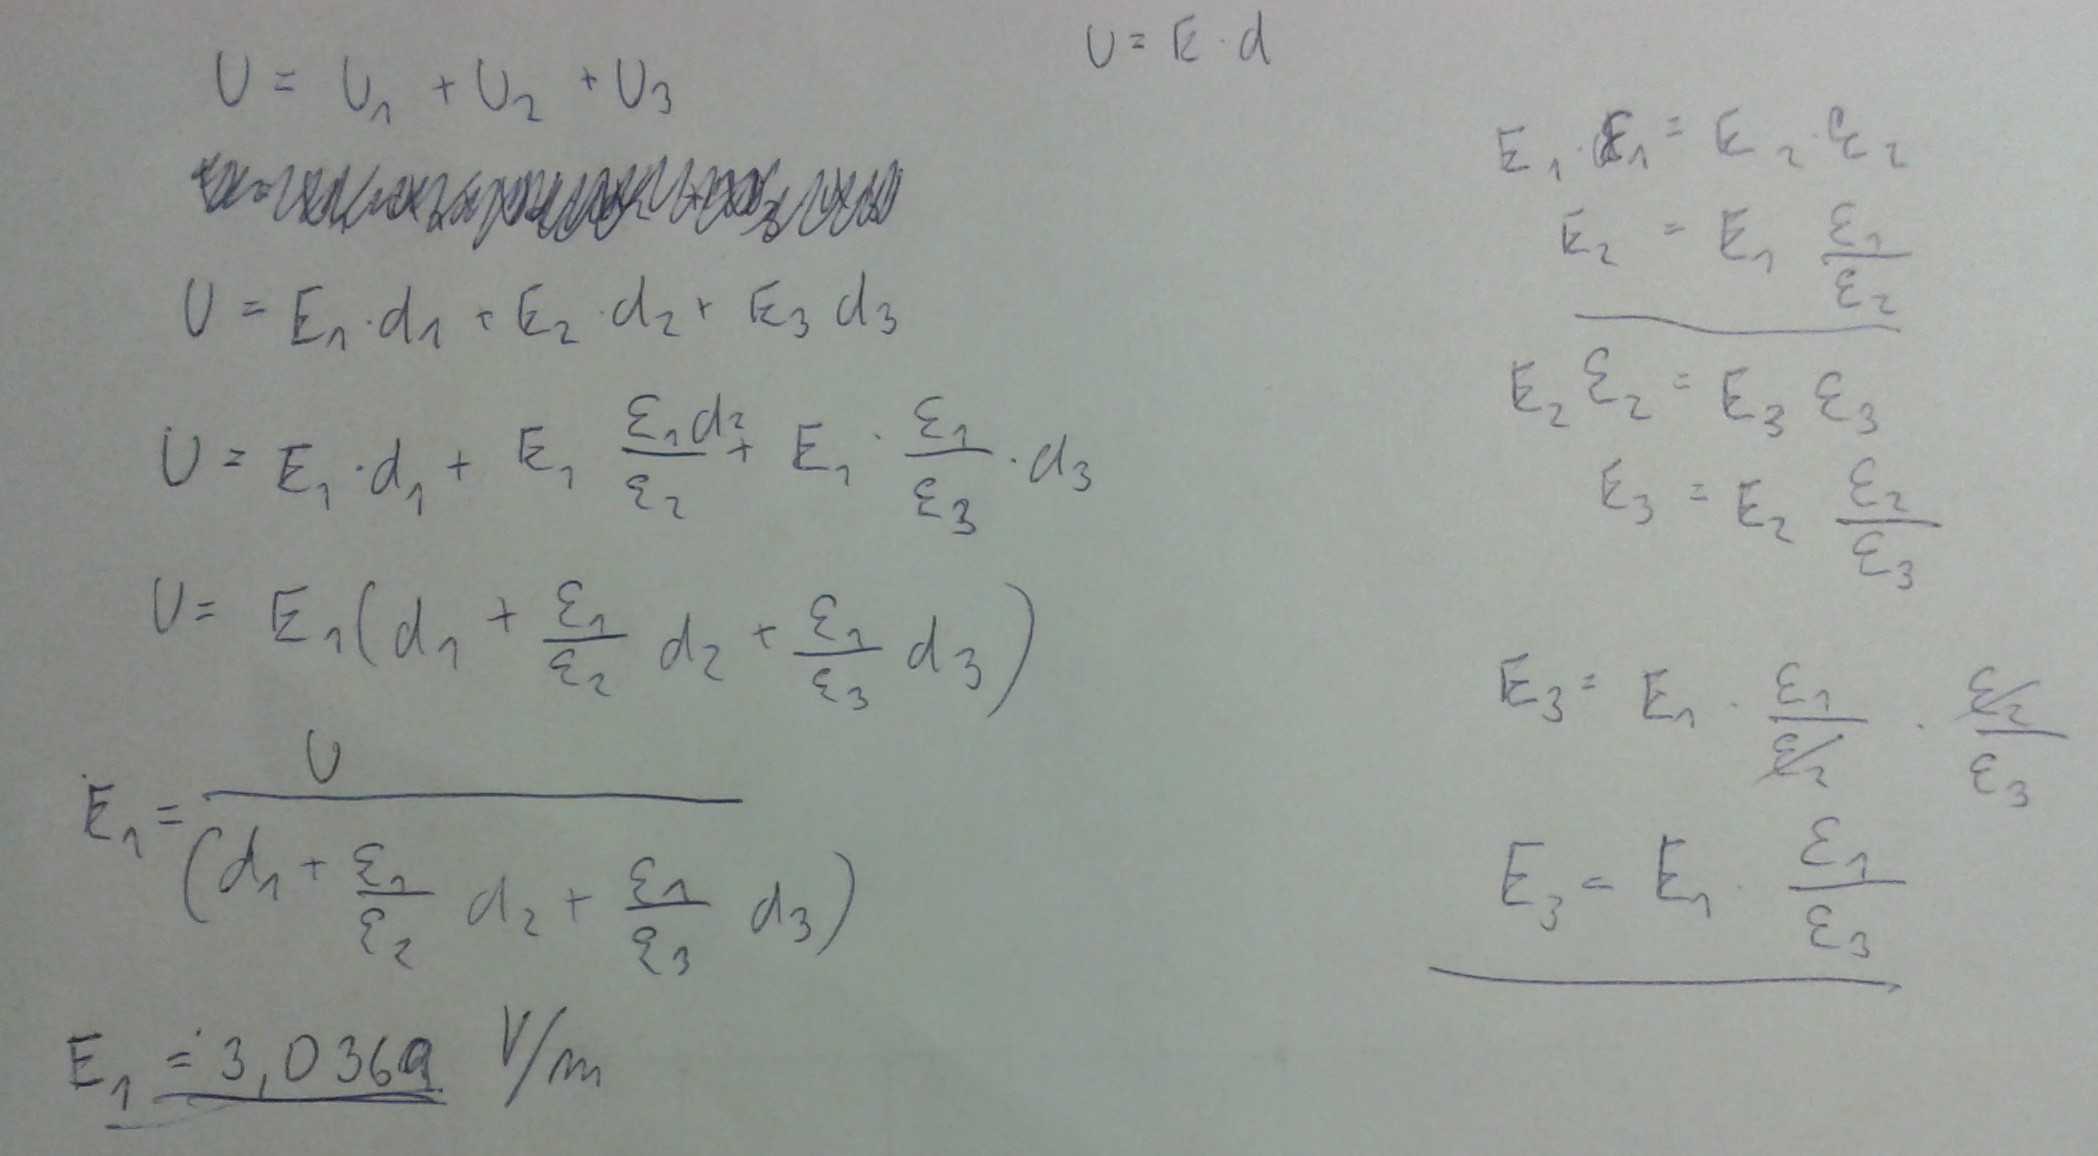 U = U₁ + U₂ + U₃
U = E₁·d₁ + E₂·d₂ + E₃ d₃
U = E₁·d₁ + E₁ ε₁d₂/ε₂ + E₁·ε₁/ε₃·d₃
U = E₁(d₁ + ε₁/ε₂ d₂ + ε₁/ε₃ d₃)
E₁ = U/(d₁ + ε₁/ε₂ d₂ + ε₁/ε₃ d₃)
E₁ = 3,0369 V/m
U = E·d
E₁·ε₁ = E₂·ε₂
E₂ = E₁ ε₁/ε₂
E₂ ε₂ = E₃ ε₃
E₃ = E₂ ε₂/ε₃
E₃ = E₁·ε₁/ε₂·ε₂/ε₃
E₃ = E₁·ε₁/ε₃